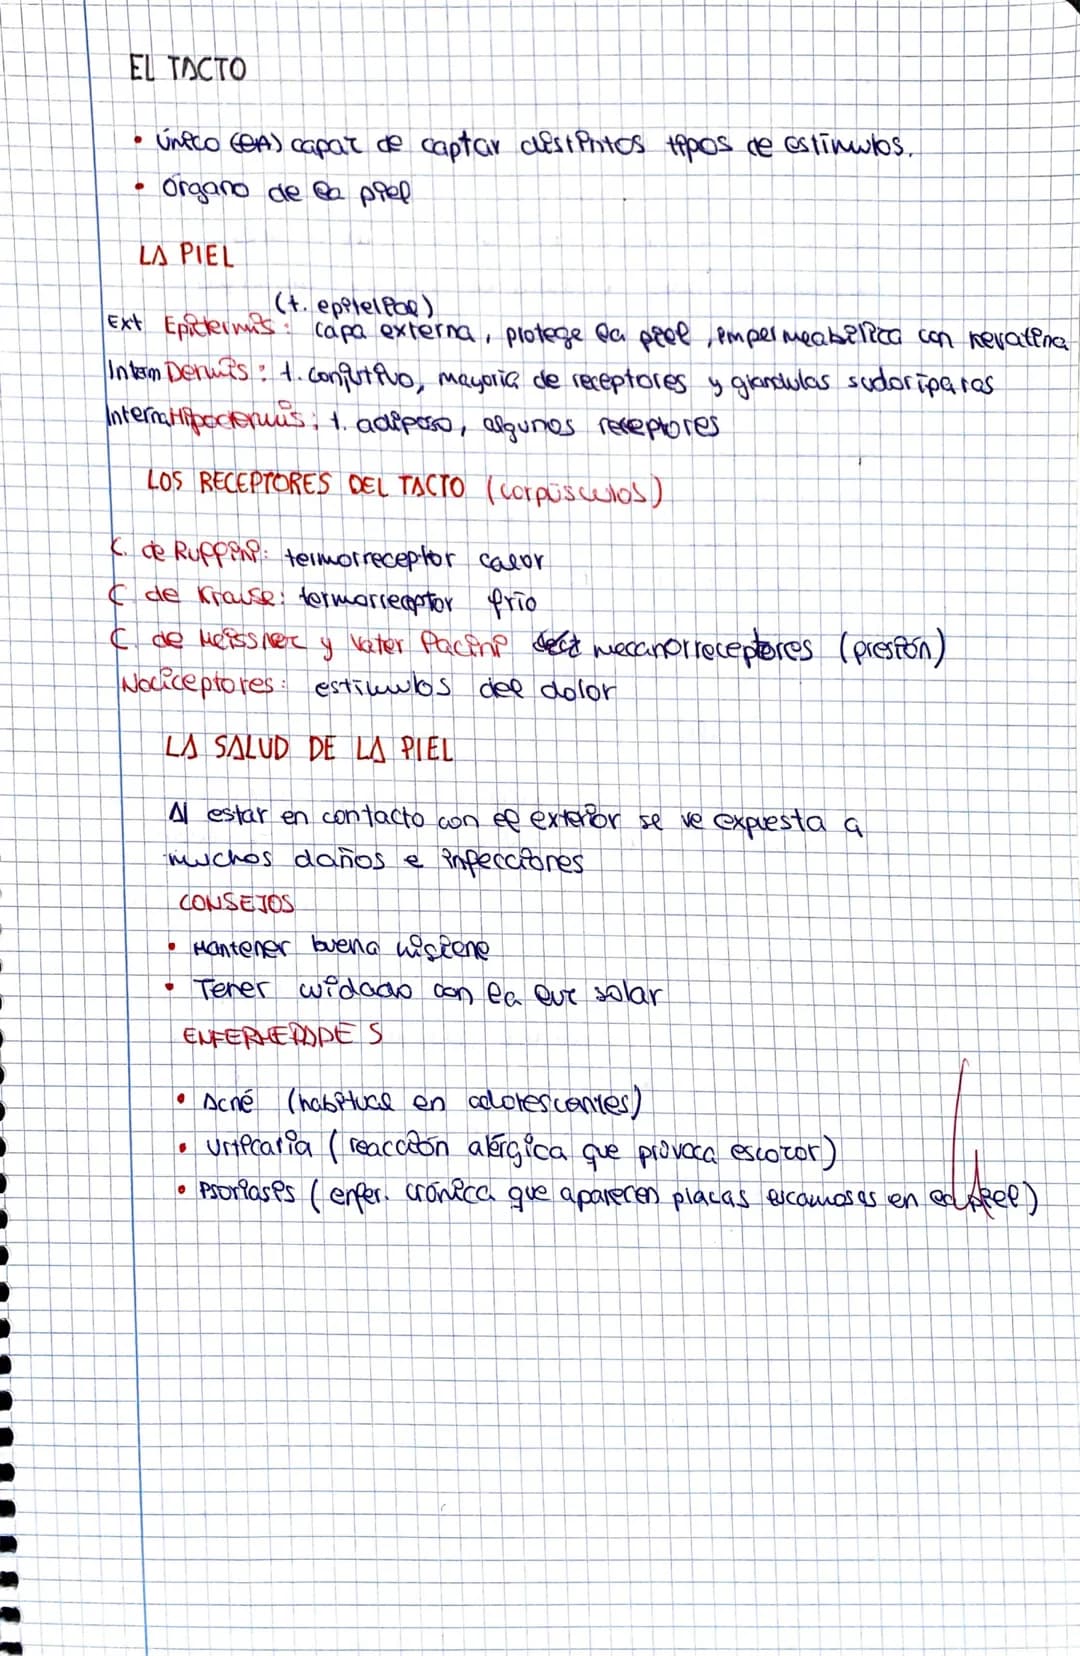 EL TACTO
• único (EA) capaz de captar distintos tipos de estímulos.
• órgano de la piel
LA PIEL
(t. epitelial)
Ext Epidermis: capa externa, protege la piel, impermeabiliza con keratina
Interm Dermis: t. conjuntivo, mayoría de receptores y glandulas sudoríparas
Interna Hipodermis: t. adiposo, algunos receptores
LOS RECEPTORES DEL TACTO (corpúsculos)
C. de Ruffini: termorreceptor calor
C de Krause: termorreceptor frío
C. de Meissner y Vater Pacini mecanorreceptores (presión)
Nociceptores: estímulos del dolor
LA SALUD DE LA PIEL
Al estar en contacto con el exterior se ve expuesta a
muchos daños e infecciones
CONSEJOS
• Mantener buena higiene
• Tener cuidado con la luz solar
ENFERMEDADES
• Acné (habitual en adolescentes)
• Urticaria (reacción alérgica que provoca escozor)
• Psoriasis (enfer. crónica que aparecen placas escamosas en piel)